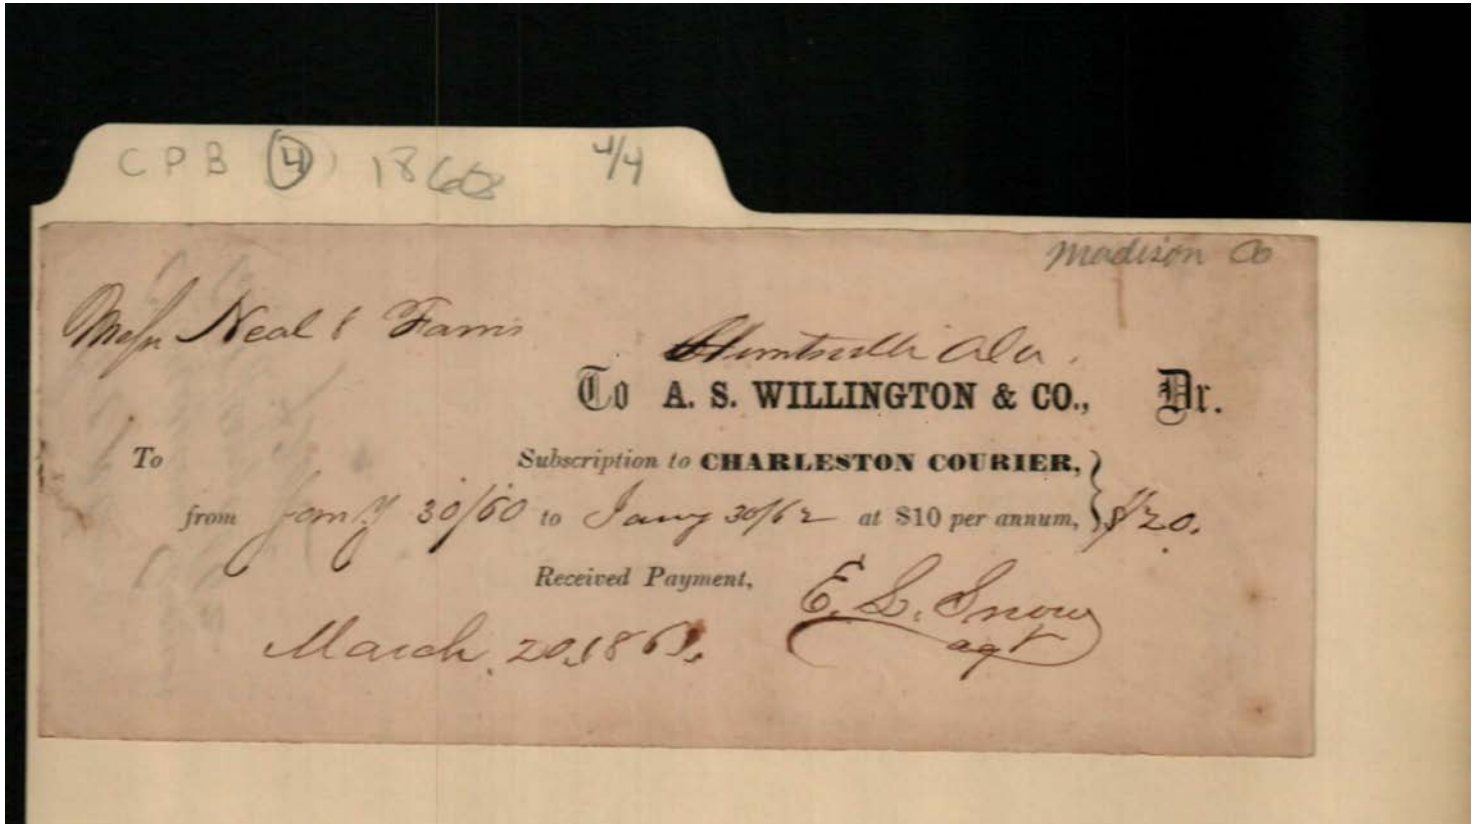 CPB 4 1868 4/4
Madison Co
Messr Neal & Farris
Huntsville Ala.
To A. S. WILLINGTON & CO., Dr.
To Subscription to CHARLESTON COURIER,
from Jany 30/60 to Jany 30/62 at $10 per annum, } $20.
Received Payment, E. S. Snow
agt
March. 20, 1861.